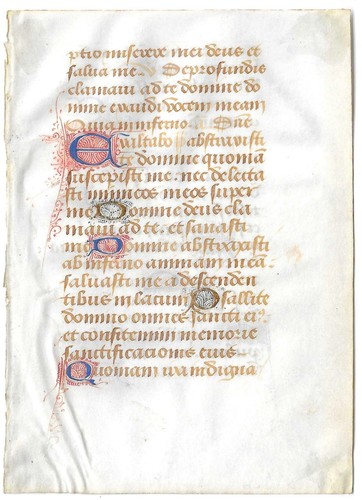 ptio miserere mei deus et
salua me. De profundis
clamaui ad te domine do
mine exaudi vocem meam
Quia in inferno. Ps
Exaltabo abstraxisti
te domine quoniã
suscepisti me. nec delecta
sti inimicos meos super
me Domine deus cla
maui ad te. et sanasti
me Domine abstraxisti
ab inferno animam meam
saluasti me a descenden
tibus in lacum Psallite
domino omnes sancti ei
et confitemini memorie
sanctificacionis eius.
Quoniam ira in digna